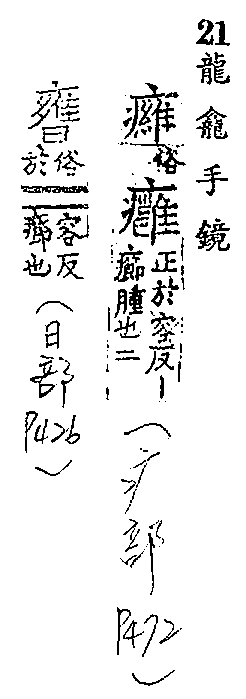 21龍龕手鏡
癕俗
正於容反丨
腫也二
（疒部P472）
俗於
容反
也
（日部P426）